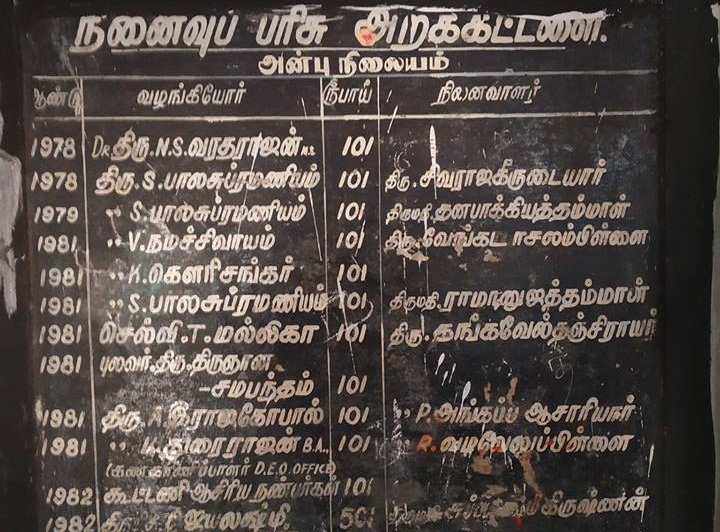 நனைவுப் பரிசு அறக்கட்டளை.
அன்பு நிலையம்
ஆண்டு வழங்கியோர் ரூபாய் நிலனவாளர்
1978 Dr. திரு. N.S. வரதராஜன் 101
1978 திரு. S. பாலசுப்ரமணியம் 101 திரு. சிவராஜகீருடையார்
1979 " S. பாலசுப்ரமணியம் 101 திருமதி. தனபாக்கியத்தம்மாள்
1981 " V. நமச்சிவாயம் 101 திரு.
1981 " K. கௌரிசங்கர் 101
1981 " S. பாலசுப்ரமணியம் 101 திருமதி. ராமானுஜத்தம்மாள்
1981 செல்வி. T. மல்லிகா 101 திரு.
1981 புலவர். திரு. திருஞான
-சமபந்தம் 101
1981 திரு. A. இராஜகோபால் 101 " P. அங்கப்ப ஆசாரியார்
1981 " 101 R. வடிவேலுப்பிள்ளை
D.E.O. OFFICE)
1982 கூட்டணி ஆசிரிய நண்பர்கள் 101
1982 திரு. ஜெயலக்ஷ்மி. 501 கிருஷ்ணன்